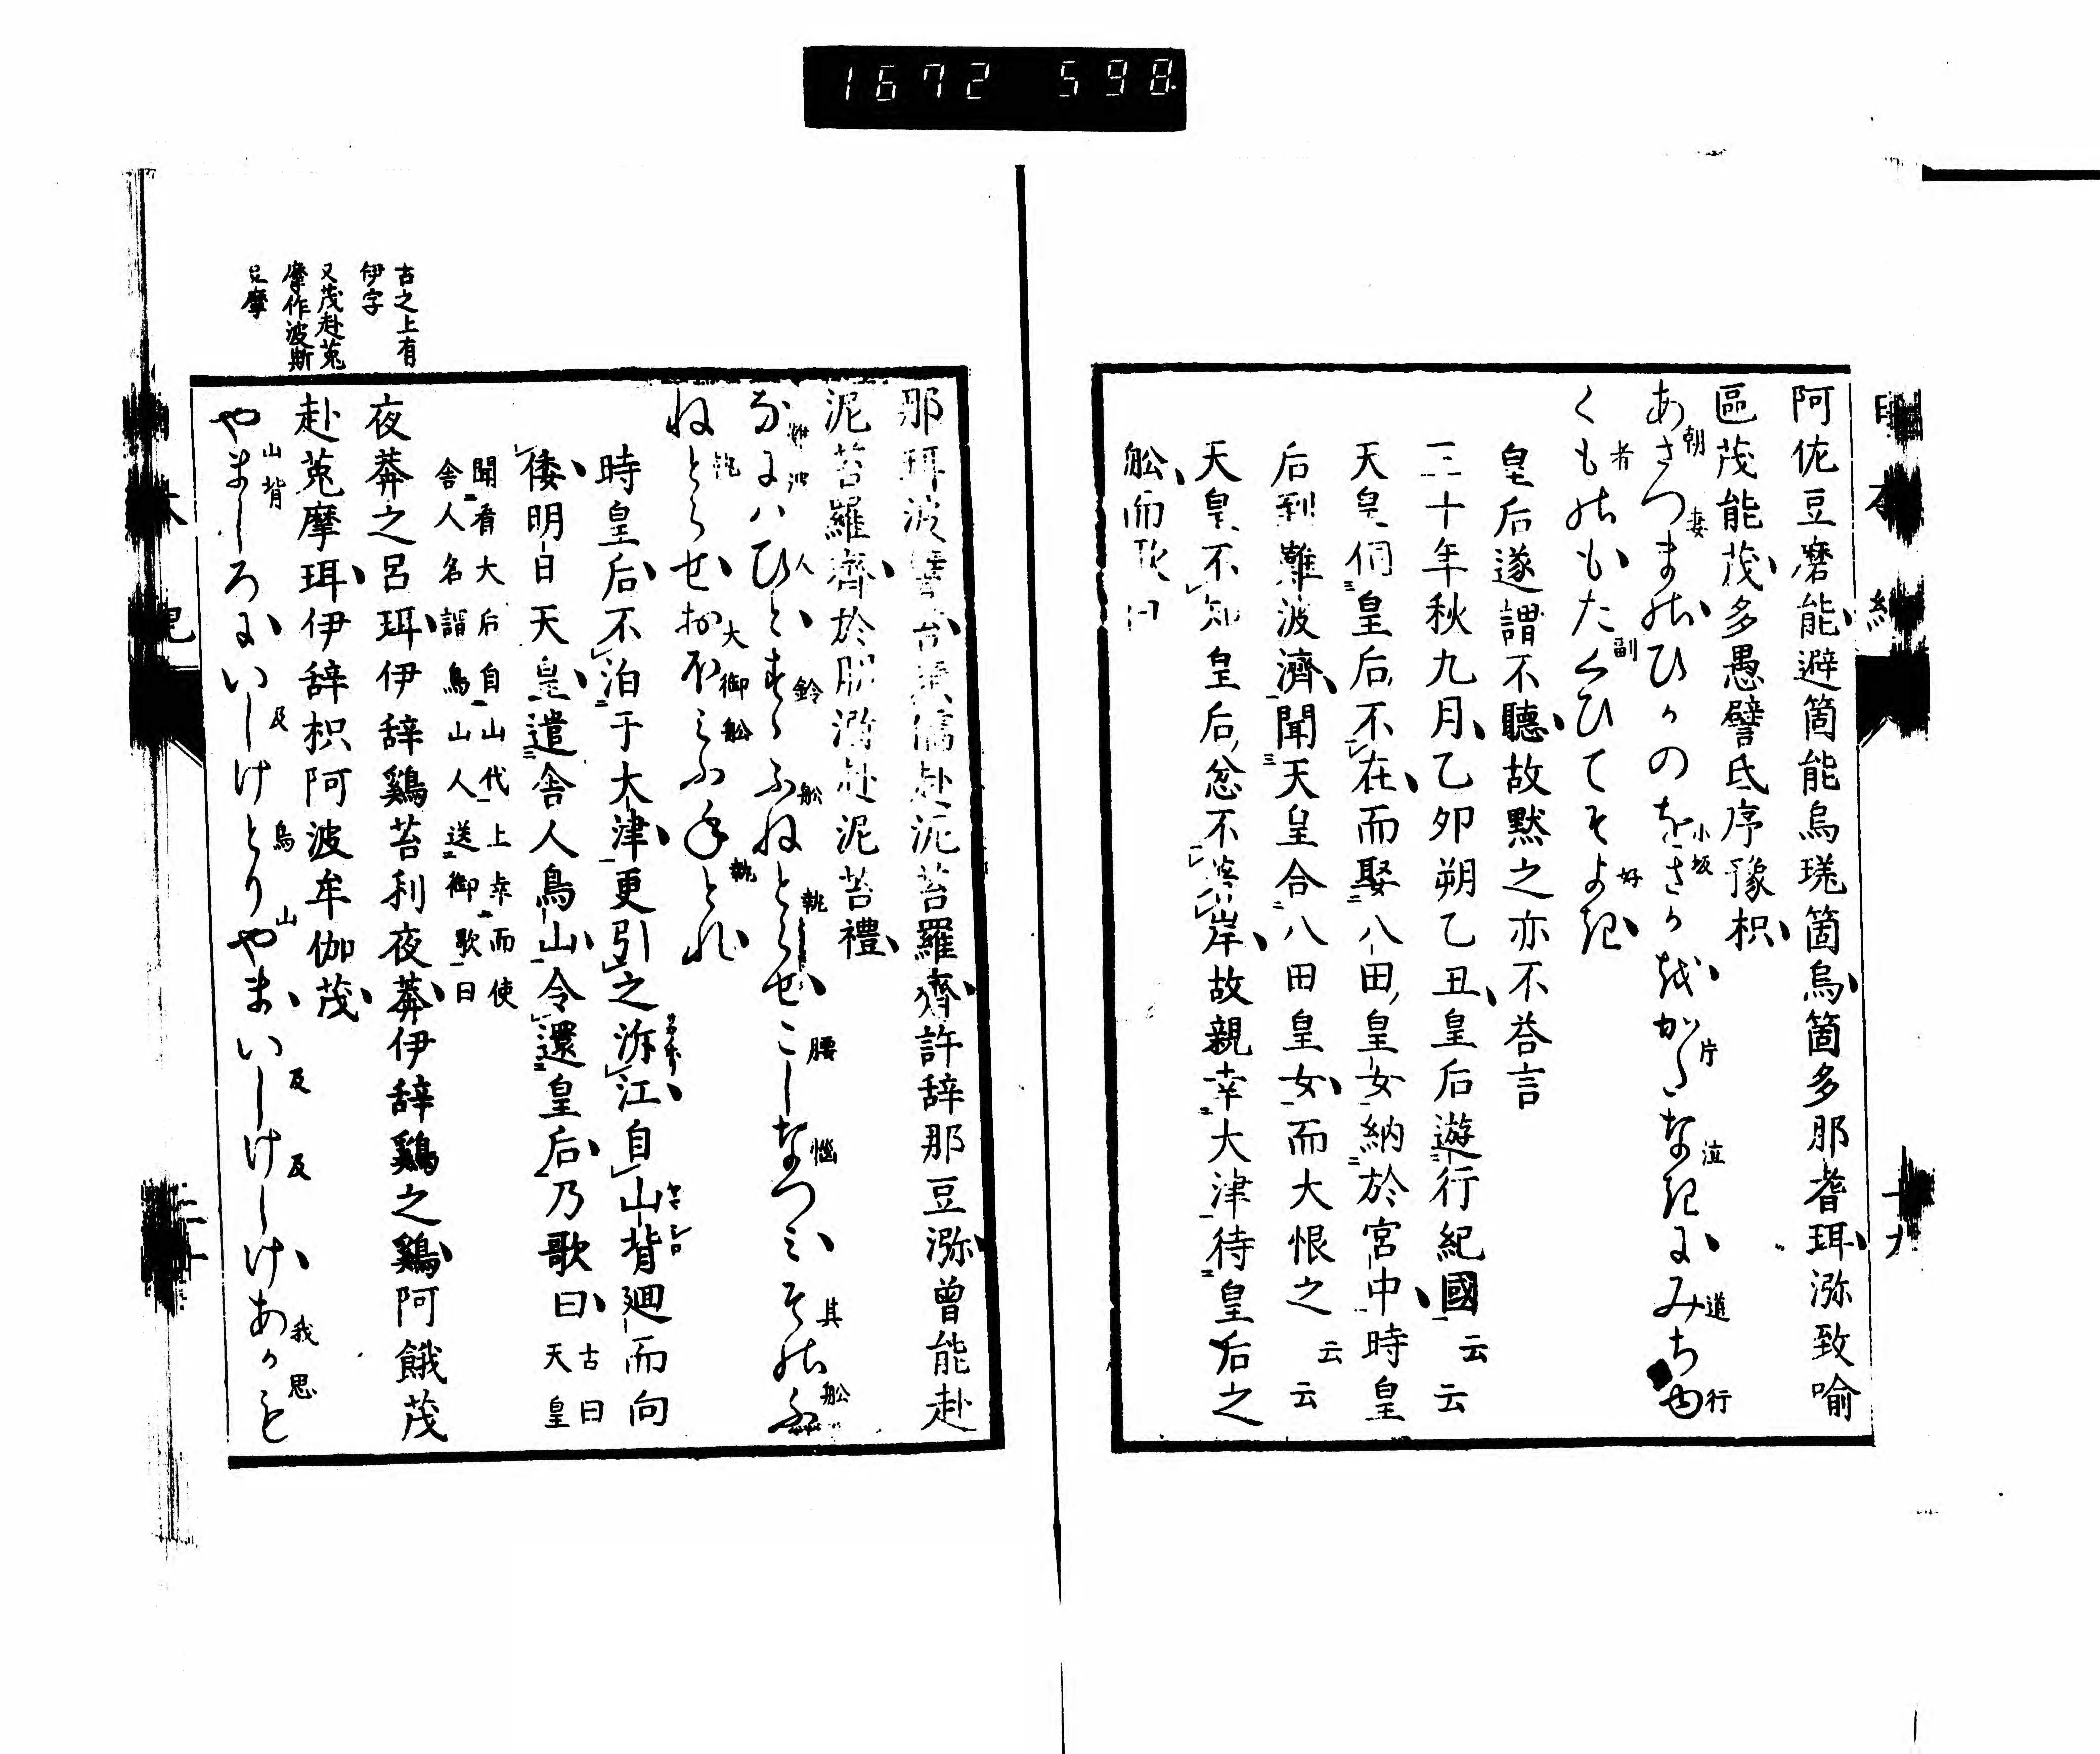 1672 598
阿佐豆磨能避箇能烏瑳箇烏箇多那耆珥瀰致喩
區茂能茂多愚譬氐序豫枳
あさつまのひかのをさかをかたなきにみちゆ
朝 妻 小坂 片 泣 道 行
くものもたくひてそよき
者 副 好
皇后遂謂不聽故默之亦不荅言
三十年秋九月乙卯朔乙丑皇后遊行紀國云云
天皇伺皇后不在而娶八田皇女納於宮中時皇
后到難波濟聞天皇合八田皇女而大恨之云云
天皇不知皇后忿不著岸故親幸大津待皇后之
舩而歌曰
古之上有
伊字
又茂赴菟
摩作波斯
豆摩
那珥波譬苔須儒赴泥苔羅齊許辞那豆瀰曾能赴
泥苔羅齊於朋瀰赴泥苔禮
なにはひとすゝふねとらせこしなつみそのふ
難波 人 鈴 舩 執 腰 惱 其 舩
ねとらせおほみふねとれ
執 大御舩 執
時皇后不泊于大津更引之泝江自山背廻而向
ヤマシロ
倭明日天皇遣舎人鳥山令還皇后乃歌曰古曰天皇
聞看大后自山代上幸而使
舎人名謂鳥山人送御歌曰
夜莾之呂珥伊辞鷄苔利夜莾伊辞鷄之鷄阿餓茂
赴菟摩珥伊辞枳阿波牟伽茂
やましろにいしけとりやまいしけしけあかも
山背 及 鳥 山 及 及 我 思